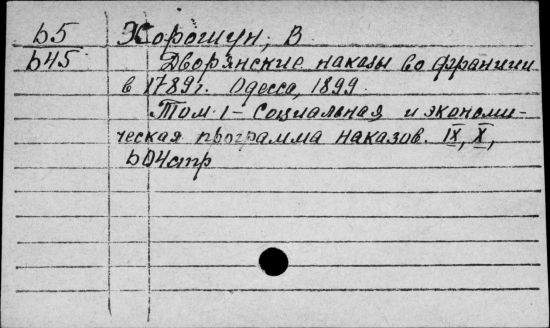 б5 Хорошун, В
б45 Дворянские наказы во франции
в 1789г. Одесса, 1899
Том 1 - Социальная и экономи-
ческая программа наказов. IX, X,
604стр